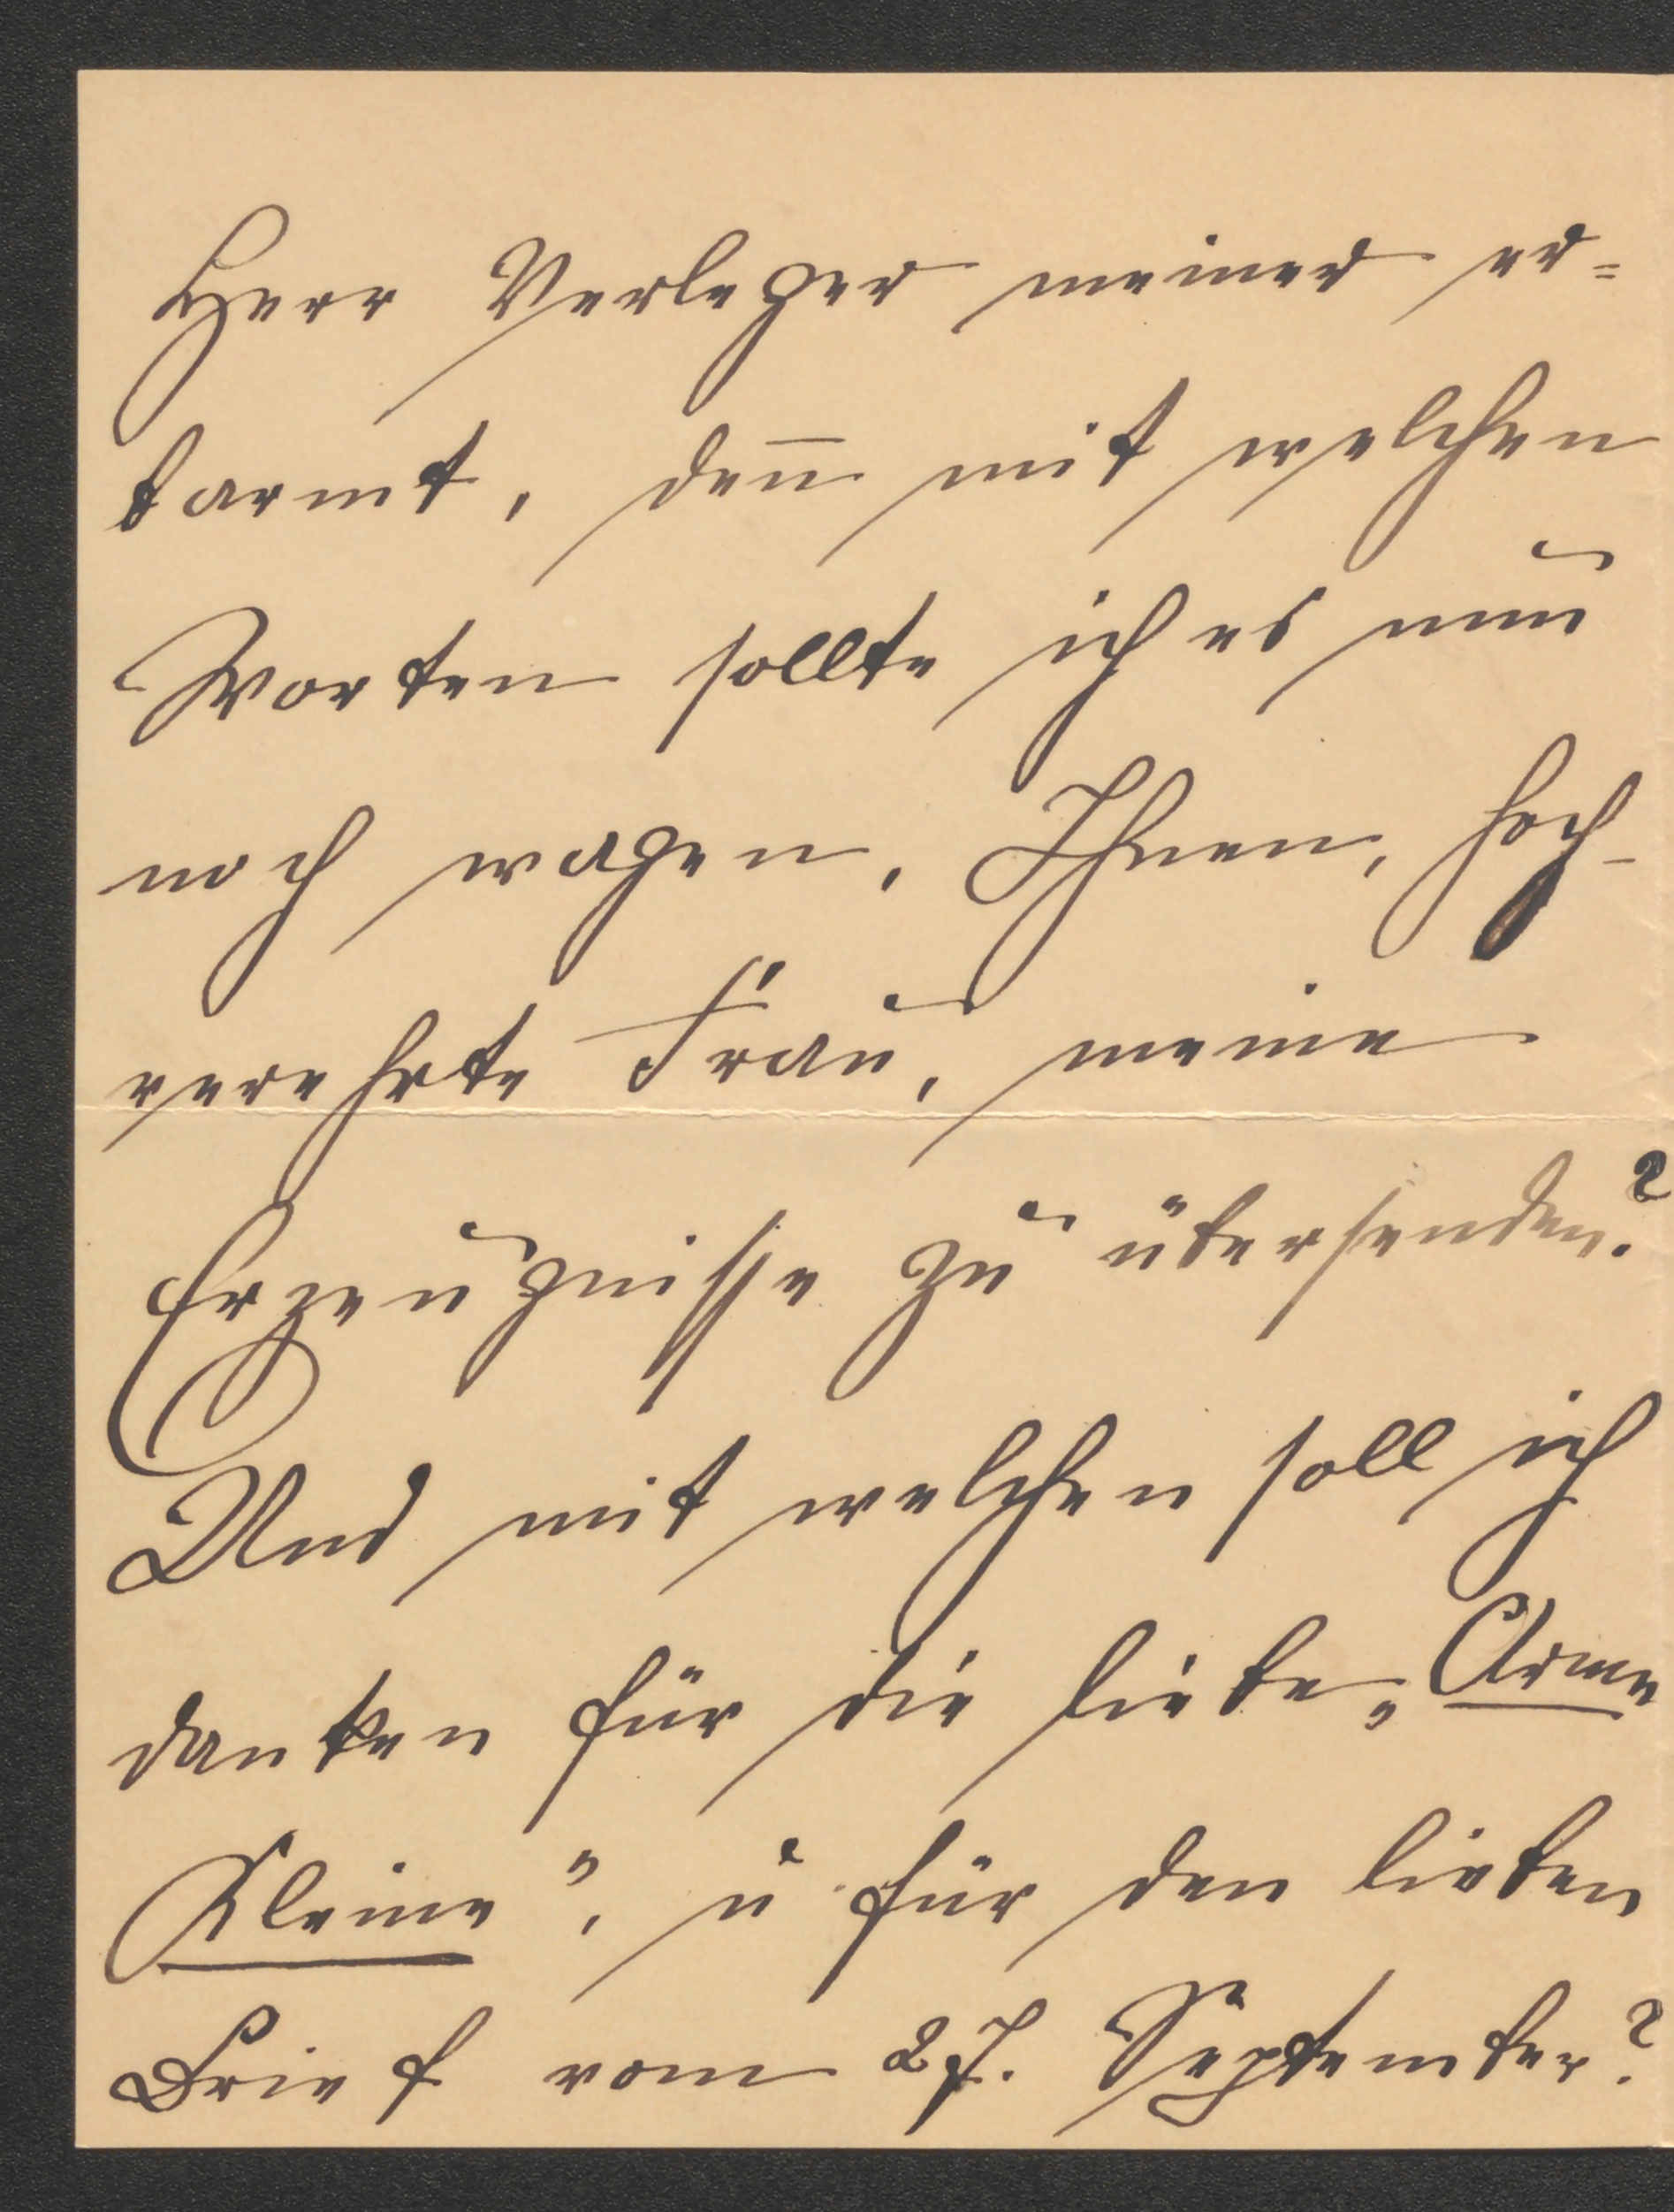 Herr Verleger meiner er=
barmt, den̅ mit welchen
Worten sollte ich es nun
noch wagen, Ihnen, hoch-
verehrte Frau, meine
Erzeugnisse zu übersenden?
Und mit welchen soll ich
danken für die liebe „Arme
Kleine", u für den lieben
Brief vom 27. September?